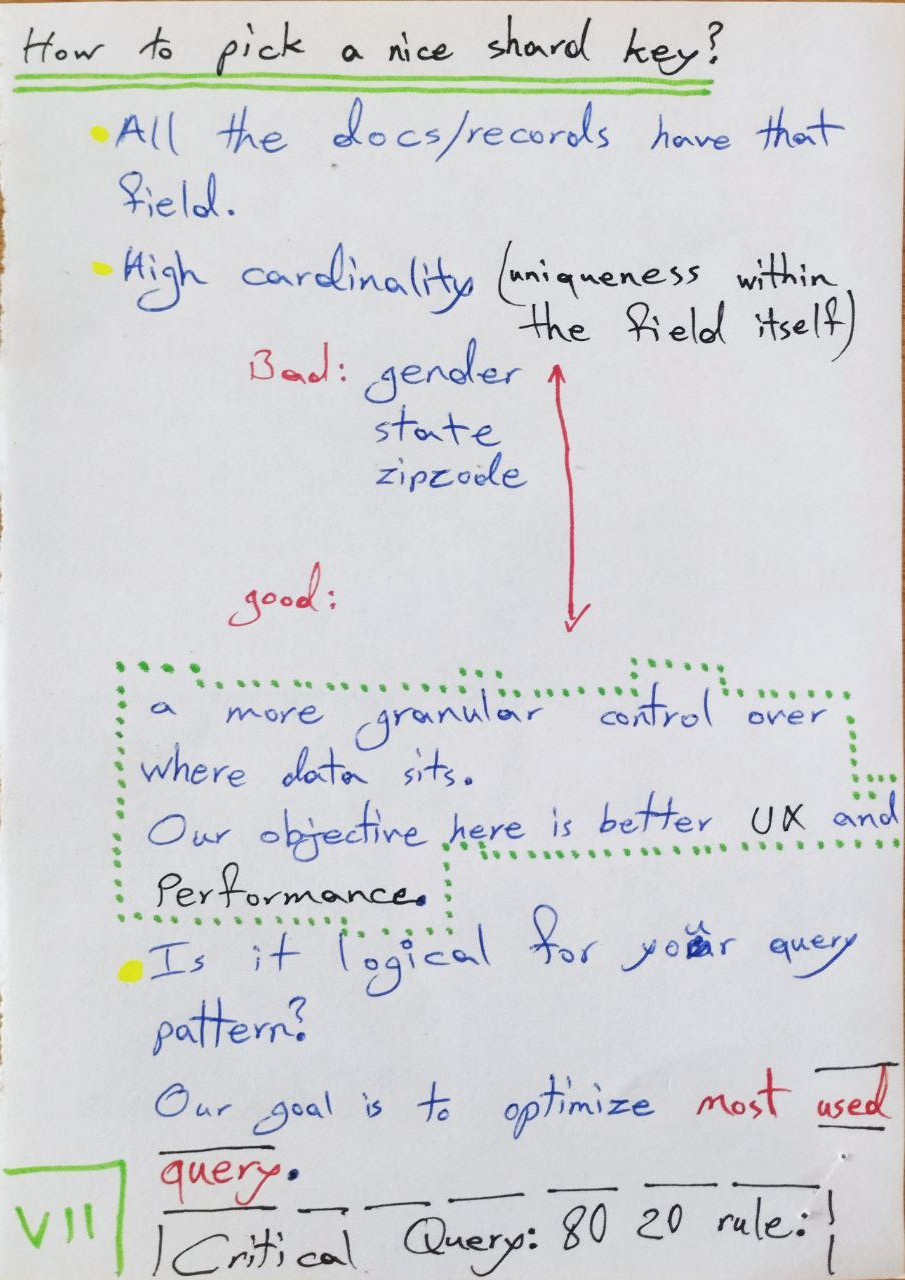 How to pick a nice shard key?
All the docs/records have that
field.
High cardinality (uniqueness within
the field itself)
Bad: gender
state
zipcode
good:
a more granular control over
where data sits.
Our objective here is better UX and
Performance.
Is it logical for your query
pattern?
Our goal is to optimize most used
query.
Critical Query: 80 20 rule:
VII